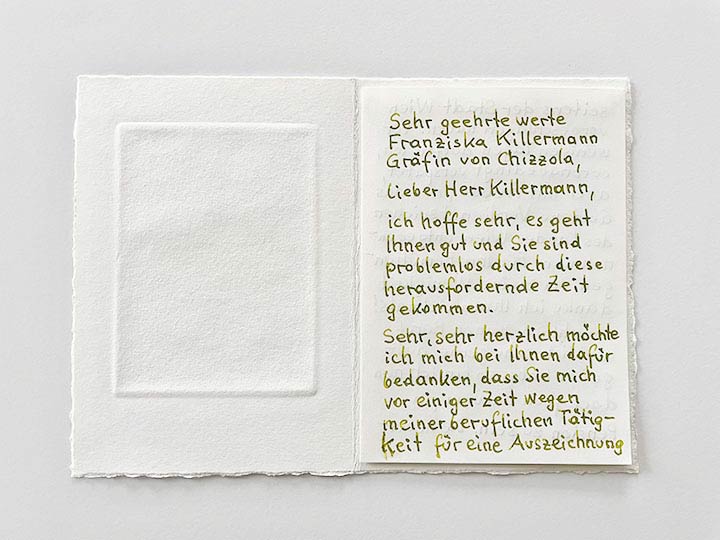 Sehr geehrte werte
Franziska Killermann
Gräfin von Chizzola,
Lieber Herr Killermann,
ich hoffe sehr, es geht
Ihnen gut und Sie sind
problemlos durch diese
herausfordernde Zeit
gekommen.
Sehr, sehr herzlich möchte
ich mich bei Ihnen dafür
bedanken, dass Sie mich
vor einiger Zeit wegen
meiner beruflichen Tätig-
keit für eine Auszeichnung